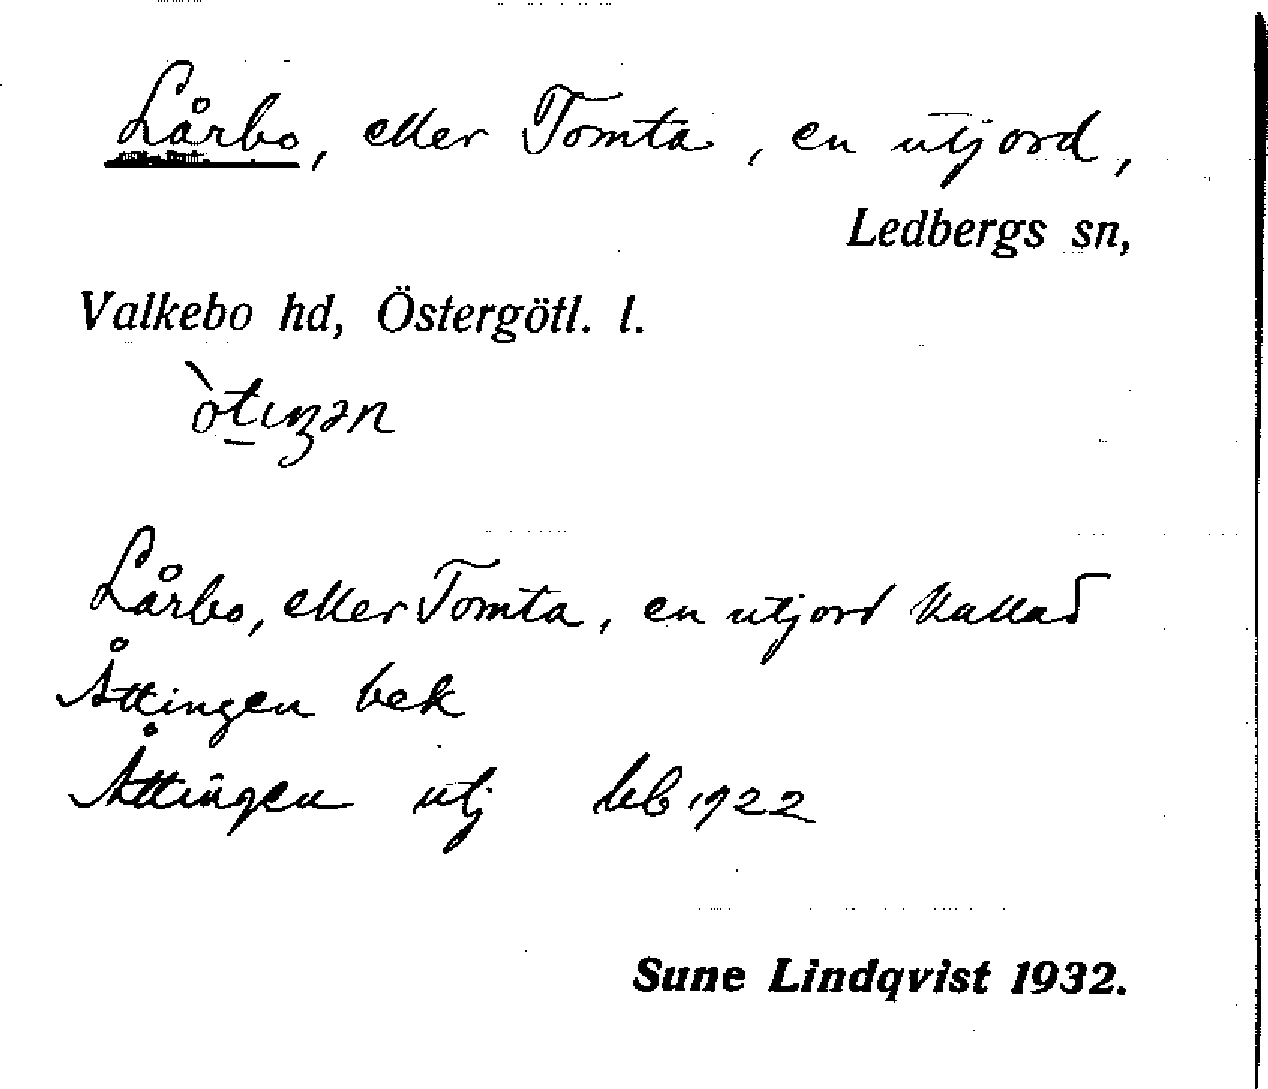 Lårbo, eller Tomta, en utjord,
Ledbergs sn,
Valkebo hd, Östergötl. l.
Lårbo, eller Tomta, en utjord kallad
Åttingen bek
Åttingen utj kb 1922
Sune Lindqvist 1932.